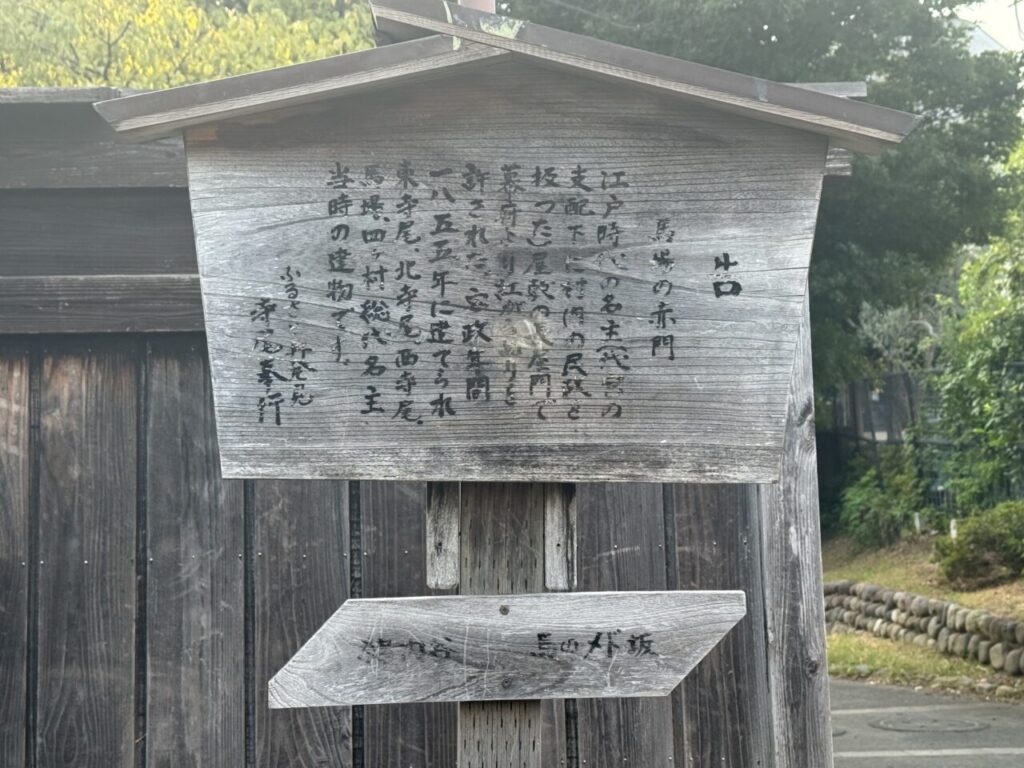 告
馬場の赤門
江戸時代の名主(代官の
支配下に村内の民政を
扱った)屋敷の長屋門で
幕府より紅がら塗りを
許された。安政年間
一八五五年に建てられ
東寺尾、北寺尾、西寺尾、
馬場、四ヶ村総代名主
当時の建物です。
ふるさと新発見
寺尾奉行
谷 馬のメド坂